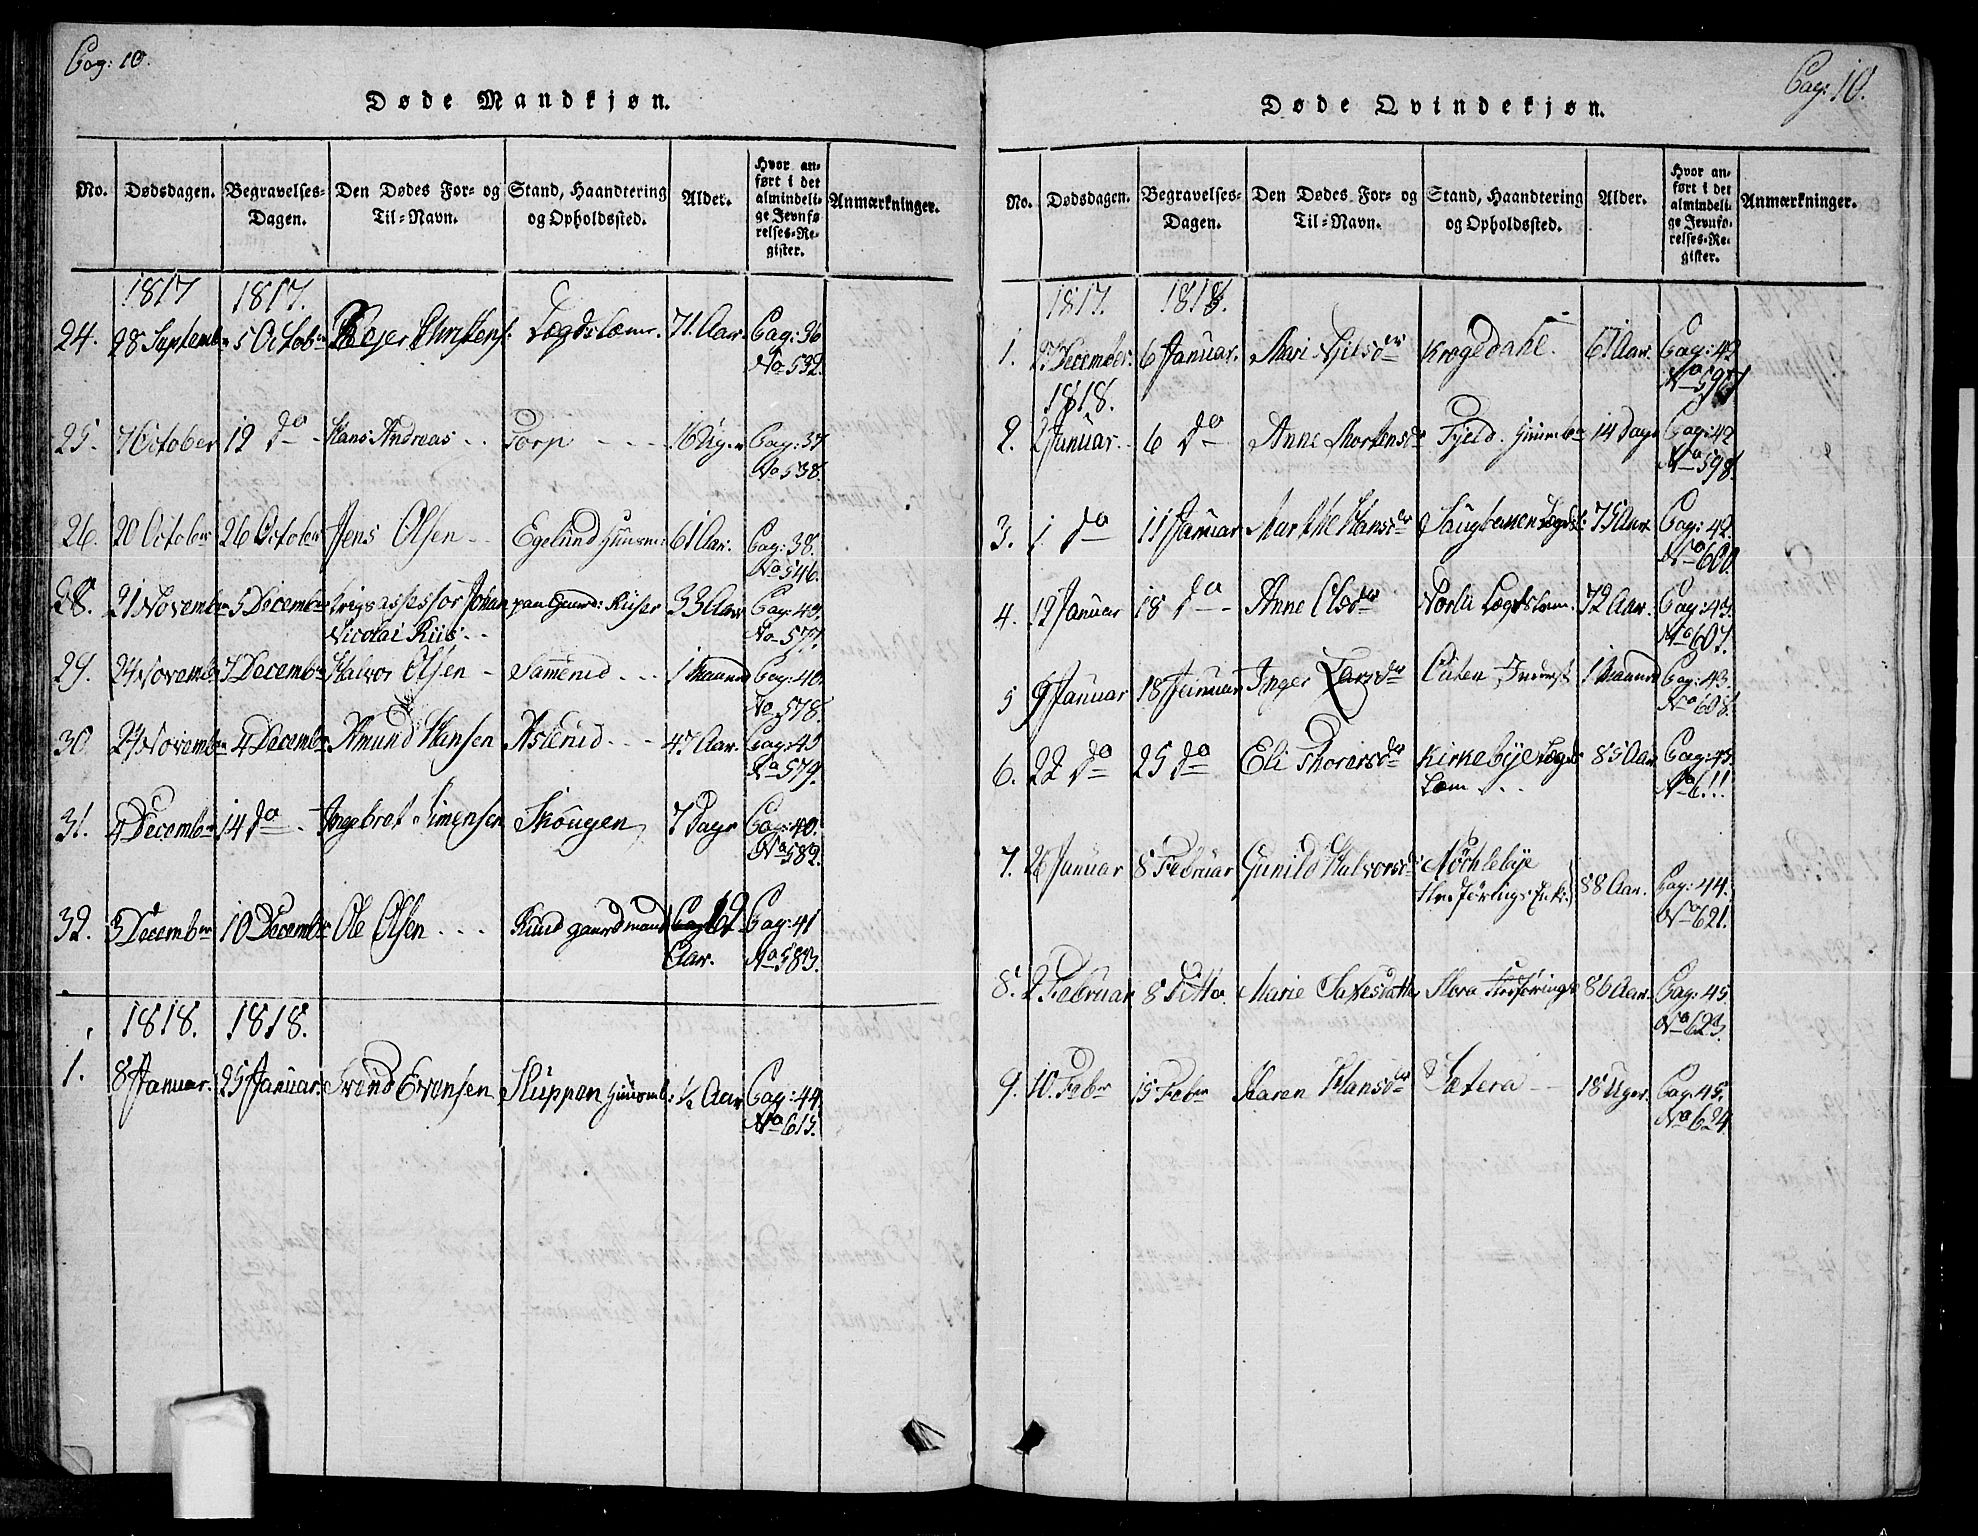 Pag: 10.
Døde Mandkjøn.
No. Dødsdagen. Begravelses-Dagen. Den Dødes For- og Til-Navn. Stand, Haandtering og Opholdssted. Alder. Hvor anført i det almindelige Jevnførelses-Register. Anmærkninger.
1817 1817.
24. 28 Septembr 5 Octobr Christens: Lægdslæm. 71 Aar Pag: 36
No 532.
25. 7 October 12 do Hans Andreas Torp 16 Ug.r Pag: 37
No 538.
26. 20 October 26 October Jens Olsen Egelund Huusm: 61 Aar. Pag: 38.
No 546.
28. 21 November 5 December Krigsassessor Johan paa Gaard: Riiser 33 Aar Pag: 40.
Nicolai Riis No 577.
29. 24 Novembr 7 Decembr Halvor Olsen 1 Maaned Pag: 40.
No 578.
30. 24 Novembr 4 Decembr Amund Hansen 47 Aar. Pag: 40
No 579.
31. 4 Decembr 14 do Ingebret Simensen Skougen 7 Dage Pag: 40.
No 582.
32. 3 Decembr 10 Decembr Ole Olsen Ruud gaardmand 62 Pag: 41
Aar. No 583.
1818. 1818.
1. 8 Januar. 25 Januar. Svend Evensen Sluppen Huusm: ½ Aar Pag: 44
No 615.
Pag: 10.
Døde Qvindekjøn.
No. Dødsdagen. Begravelses-Dagen. Den Dødes For- og Til-Navn. Stand, Haandtering og Opholdssted. Alder. Hvor anført i det almindelige Jevnførelses-Register. Anmærkninger.
1817. 1818.
1. December. 6 Januar. Mari Nilsdr Krogedahl. 61 Aar. Pag: 42
No 597
1818.
2. 2 Januar. 6 do Anne Mortensdr Fjeld. Huusm 14 Dage Pag: 42
No 598
3. 1 do 11 Januar Marthe Hansdr Haugbanen Lægdsl: 75 Aar. Pag: 42.
No 600.
4. 12 Januar 18 do Anne Olsdr Lægdslem. 72 Aar. Pag: 43.
No 607.
5 9 Januar 18 Januar Inger Larsdr Inderst 1 Maaned Pag: 43.
No 608.
6. 22 do 25 do Eli Thoresdr Kirkebye Lægds 85 Aar Pag: 43.
Læm No 611
7. 26 Januar 8 Februar Gunild Halvorsdr Nøchlebye
Huusførings Enke. 88 Aar. Pag: 44.
No 621.
8. 2 Februar 8 Ditto. Marie 86 Aar. Pag: 45
No 623.
9. 10. Febr 15 Febr Karen Hansdr Sætera 18 Uger. Pag: 45.
No 624.